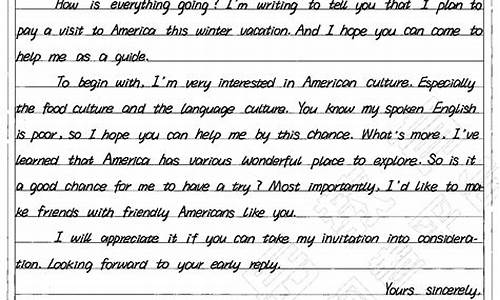 How is everything going? I'm writing to tell you that I plan to
pay a visit to America this winter vacation. And I hope you can come to
help me as a guide.
To begin with, I'm very interested in American culture. Especially
the food culture and the language culture. You know my spoken English
is poor, so I hope you can help me by this chance. What's more, I've
learned that America has various wonderful place to explore. So is it
a good chance for me to have a try? Most importantly, I'd like to ma-
ke friends with friendly Americans like you.
I will appreciate it if you can take my invitation into considera-
tion. Looking forward to your early reply.
Yours sincerely,